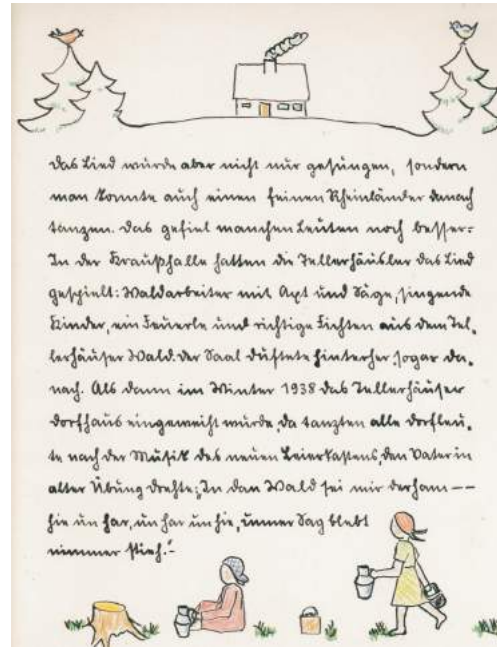 Das Lied wurde aber nicht nur gesungen, sondern
man konnte auch einen feinen Rheinländer danach
tanzen. Das gefiel manchen Leuten noch besser:
In der Kraußhalle hatten die Tellerhäusler das Lied
gespielt: Waldarbeiter mit Axt und Säge, singende
Kinder, ein Feuerle und richtige Fichten aus dem Tel-
lerhäuser Wald. Der Saal duftete hinterher sogar da-
nach. Als dann im Winter 1938 das Tellerhäuser
Dorfhaus eingeweiht wurde, da tanzten alle Dorfleu-
te nach der Musik des neuen Leierkastens, den Vater in
alter Übung drehte: „In dan Wald sei mir derham --
hie un har, un har un hie, unner Sag blebt
nimmer stieh."